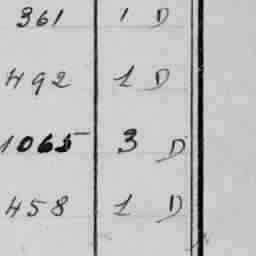 361 1 D
492 1 D
1065 3 D
458 1 D